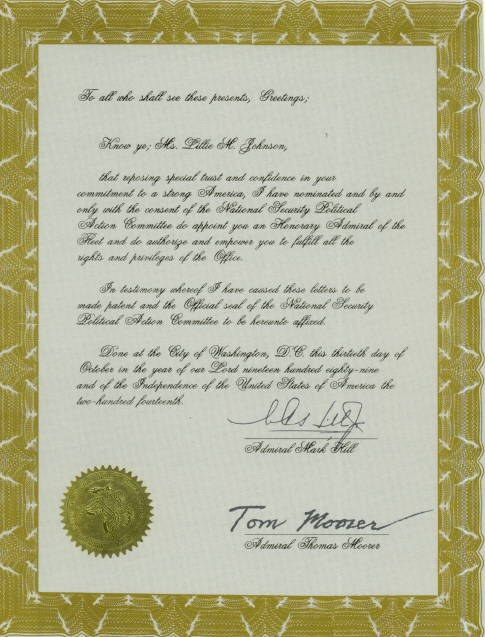 To all who shall see these presents, Greetings;
Know ye; Ms. Lillie M. Johnson,
that reposing special trust and confidence in your
commitment to a strong America, I have nominated and by and
only with the consent of the National Security Political
Action Committee do appoint you an Honorary Admiral of the
Fleet and do authorize and empower you to fulfill all the
rights and privileges of the Office.
In testimony whereof I have caused these letters to be
made patent and the Official seal of the National Security
Political Action Committee to be hereunto affixed.
Done at the City of Washington, D.C. this thirtieth day of
October in the year of our Lord nineteen hundred eighty-nine
and of the Independence of the United States of America the
two-hundred fourteenth.
Admiral Mark Hill
Tom Moorer
Admiral Thomas Moorer